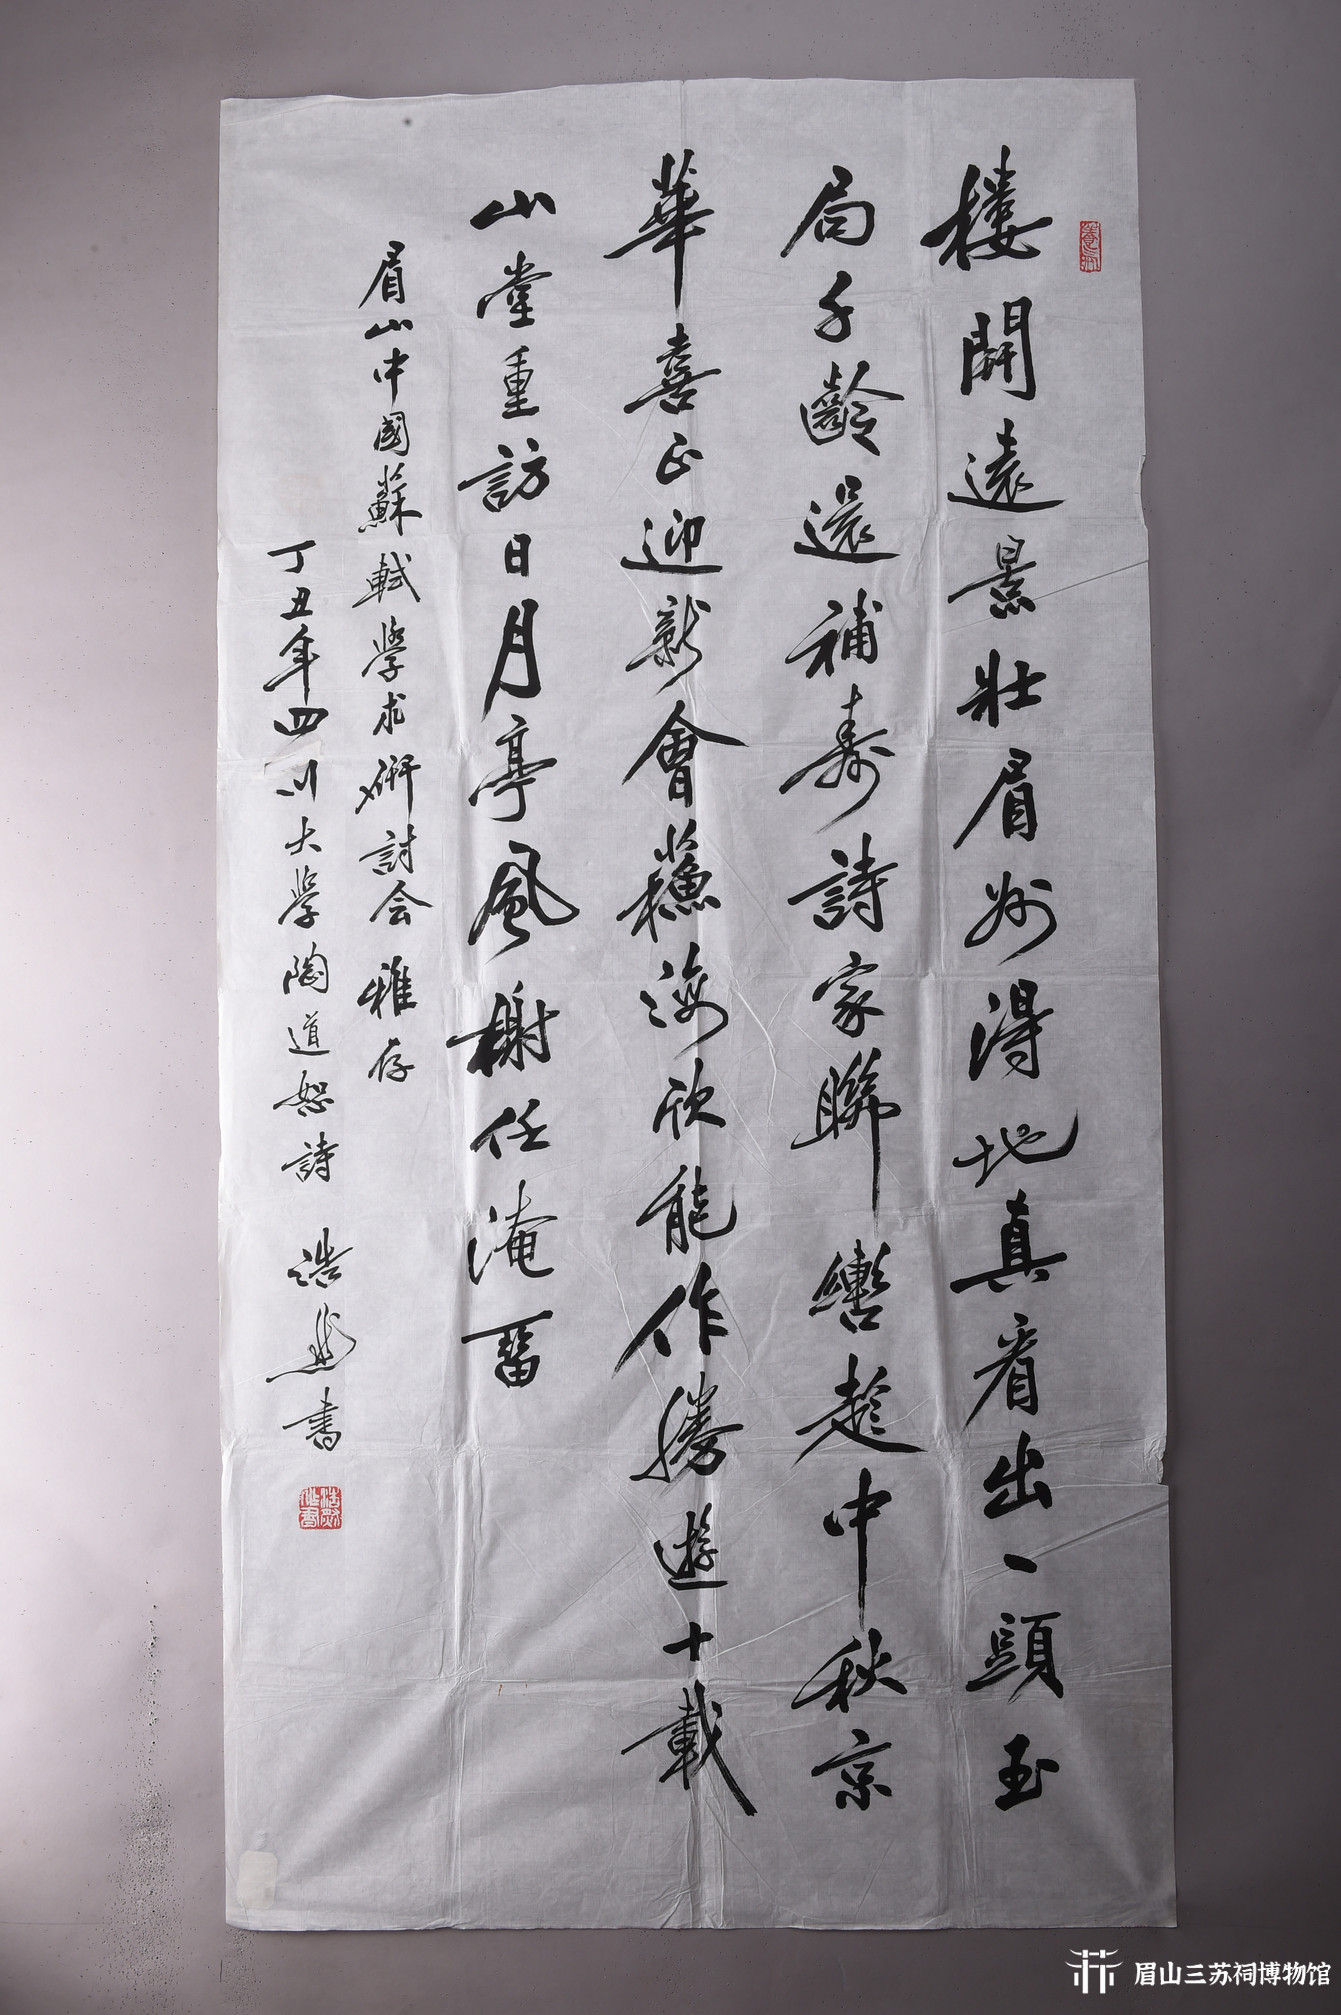 楼開遠景壯眉州得地真看出一頭玉
局千齡還補壽詩家聯轡趁中秋京
華喜正迎新會蘓海欣能作勝遊十載
山堂重訪日月亭風榭任淹留
眉山中國蘇軾學术研討会雅存
丁丑年四川大学陶道恕詩 浩然書
眉山三苏祠博物馆